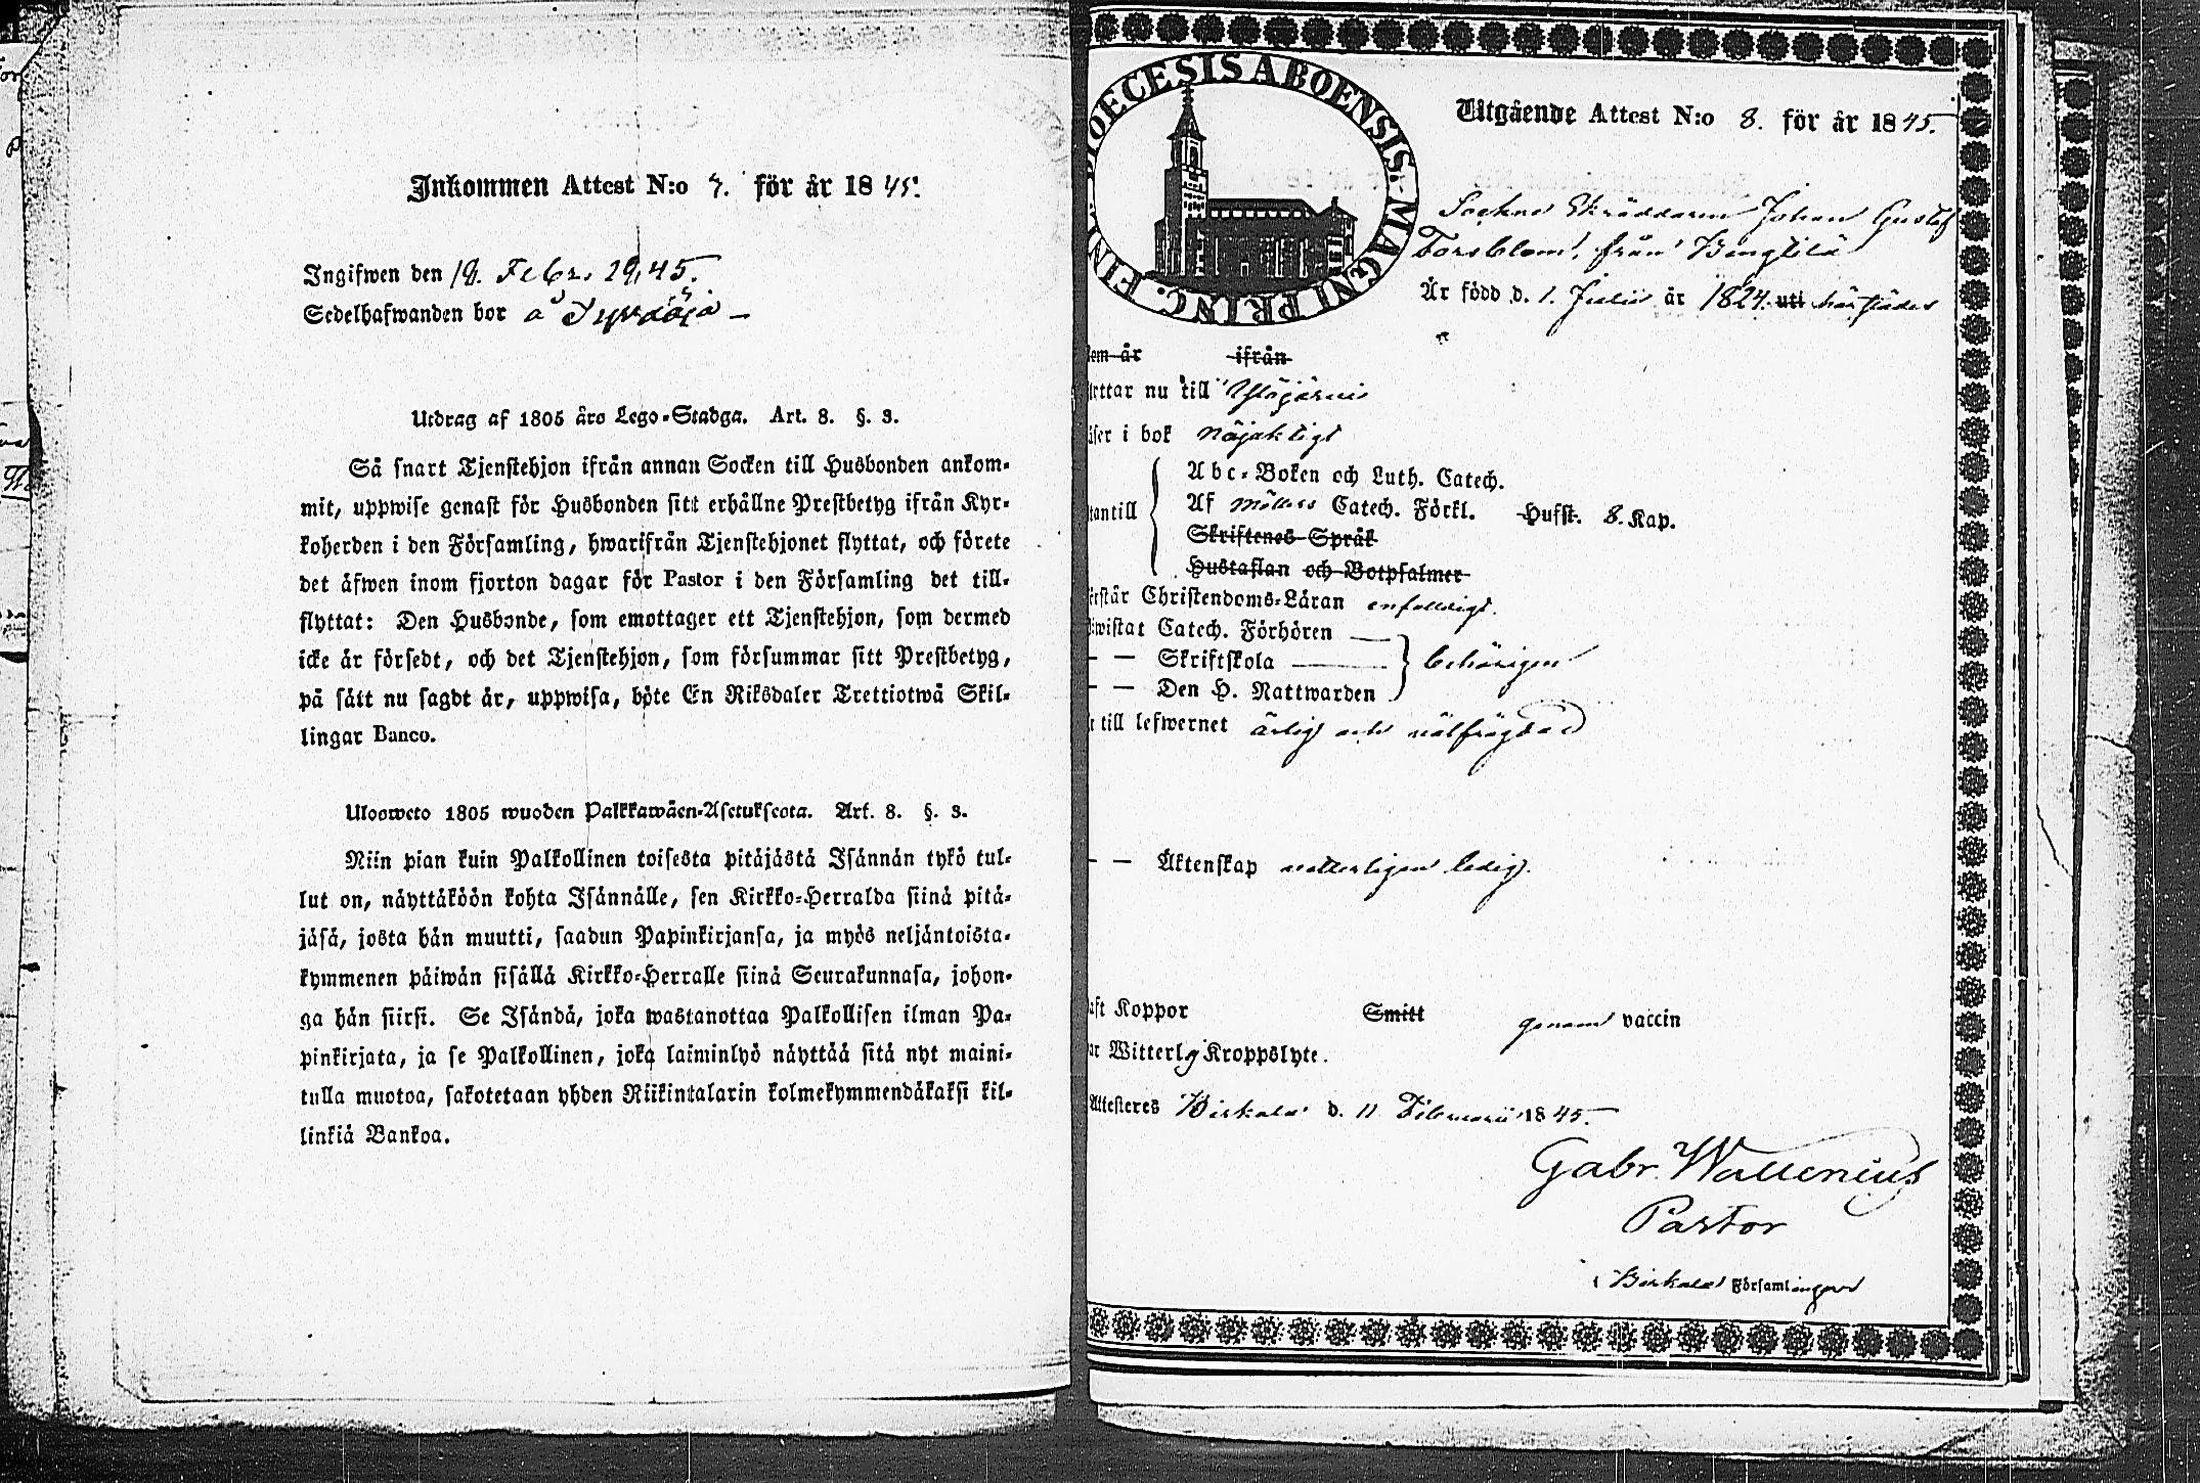 Inkommen Attest N:o 7. för år 1845.
Ingifwen den 18. Febr. 1845.
Sedelhafwanden bor å
Utdrag af 1805 års Lego-Stadga. Art. 8. §. 3.
Så snart Tjenstehjon ifrån annan Socken till Husbonden ankom-
mit, uppwise genast för Husbonden sitt erhållne Prestbetyg ifrån Kyr-
koherden i den Församling, hwarifrån Tjenstehjonet flyttat, och förete
det äfwen inom fjorton dagar för Pastor i den Församling det till-
flyttat: Den Husbonde, som emottager ett Tjenstehjon, som dermed
icke är försedt, och det Tjenstehjon, som försummar sitt Prestbetyg,
på sätt nu sagdt är, uppwisa, böte En Riksdaler Trettiotwå Skil-
lingar Banco.
Ulosweto 1805 wuoden Palkkawäen-Asetuksesta. Art. 8. §. 3.
Niin pian kuin Palkollinen toisesta pitäjästä Isännän tykö tul-
lut on, näyttäköön kohta Isännälle, sen Kirkko-Herralda siinä pitä-
jäsä, josta hän muutti, saadun Papinkirjansa, ja myös neljäntoista-
kymmenen päiwän sisällä Kirkko-Herralle siinä Seurakunnasa, johon-
ga hän siirsi. Se Isändä, joka wastanottaa Palkollisen ilman Pa-
pinkirjata, ja se Palkollinen, joka laiminlyö näyttää sitä nyt maini-
tulla muotoa, sakotetaan yhden Riikintalarin kolmekymmendäkaksi kil-
linkiä Bankoa.
DIOECESIS ABOENSIS. MAGNI PRINC. FIN
Utgående Attest N:o 8. för år 1845.
Sockne Skräddaren Johan Gustaf
Forsblom, från
Är född d. 1. Julii år 1824. uti härstädes
em år ifrån
ttar nu till Ylöjärvi
ser i bok nöjaktigt
tantill
Abc-Boken och Luth. Catech.
Af Möllers Catech. Förkl. Husst. 8. Kap.
Skriftenes Språk
Hustaflan och Botpsalmer
rstår Christendoms-Läran enfaldigt.
iwistat Catech. Förhören
— — Skriftskola behörigen
— — Den H. Nattwarden
t till lefwernet ärlig och välfrägdad
— — Äktenskap witterligen ledig.
ft Koppor Smitt genom vaccin
ar Witterlg Kroppslyte.
Attesteres Birkala d. 11 Februarii 1845.
Gabr. Wallenius
Pastor
i Birkala Församlingar